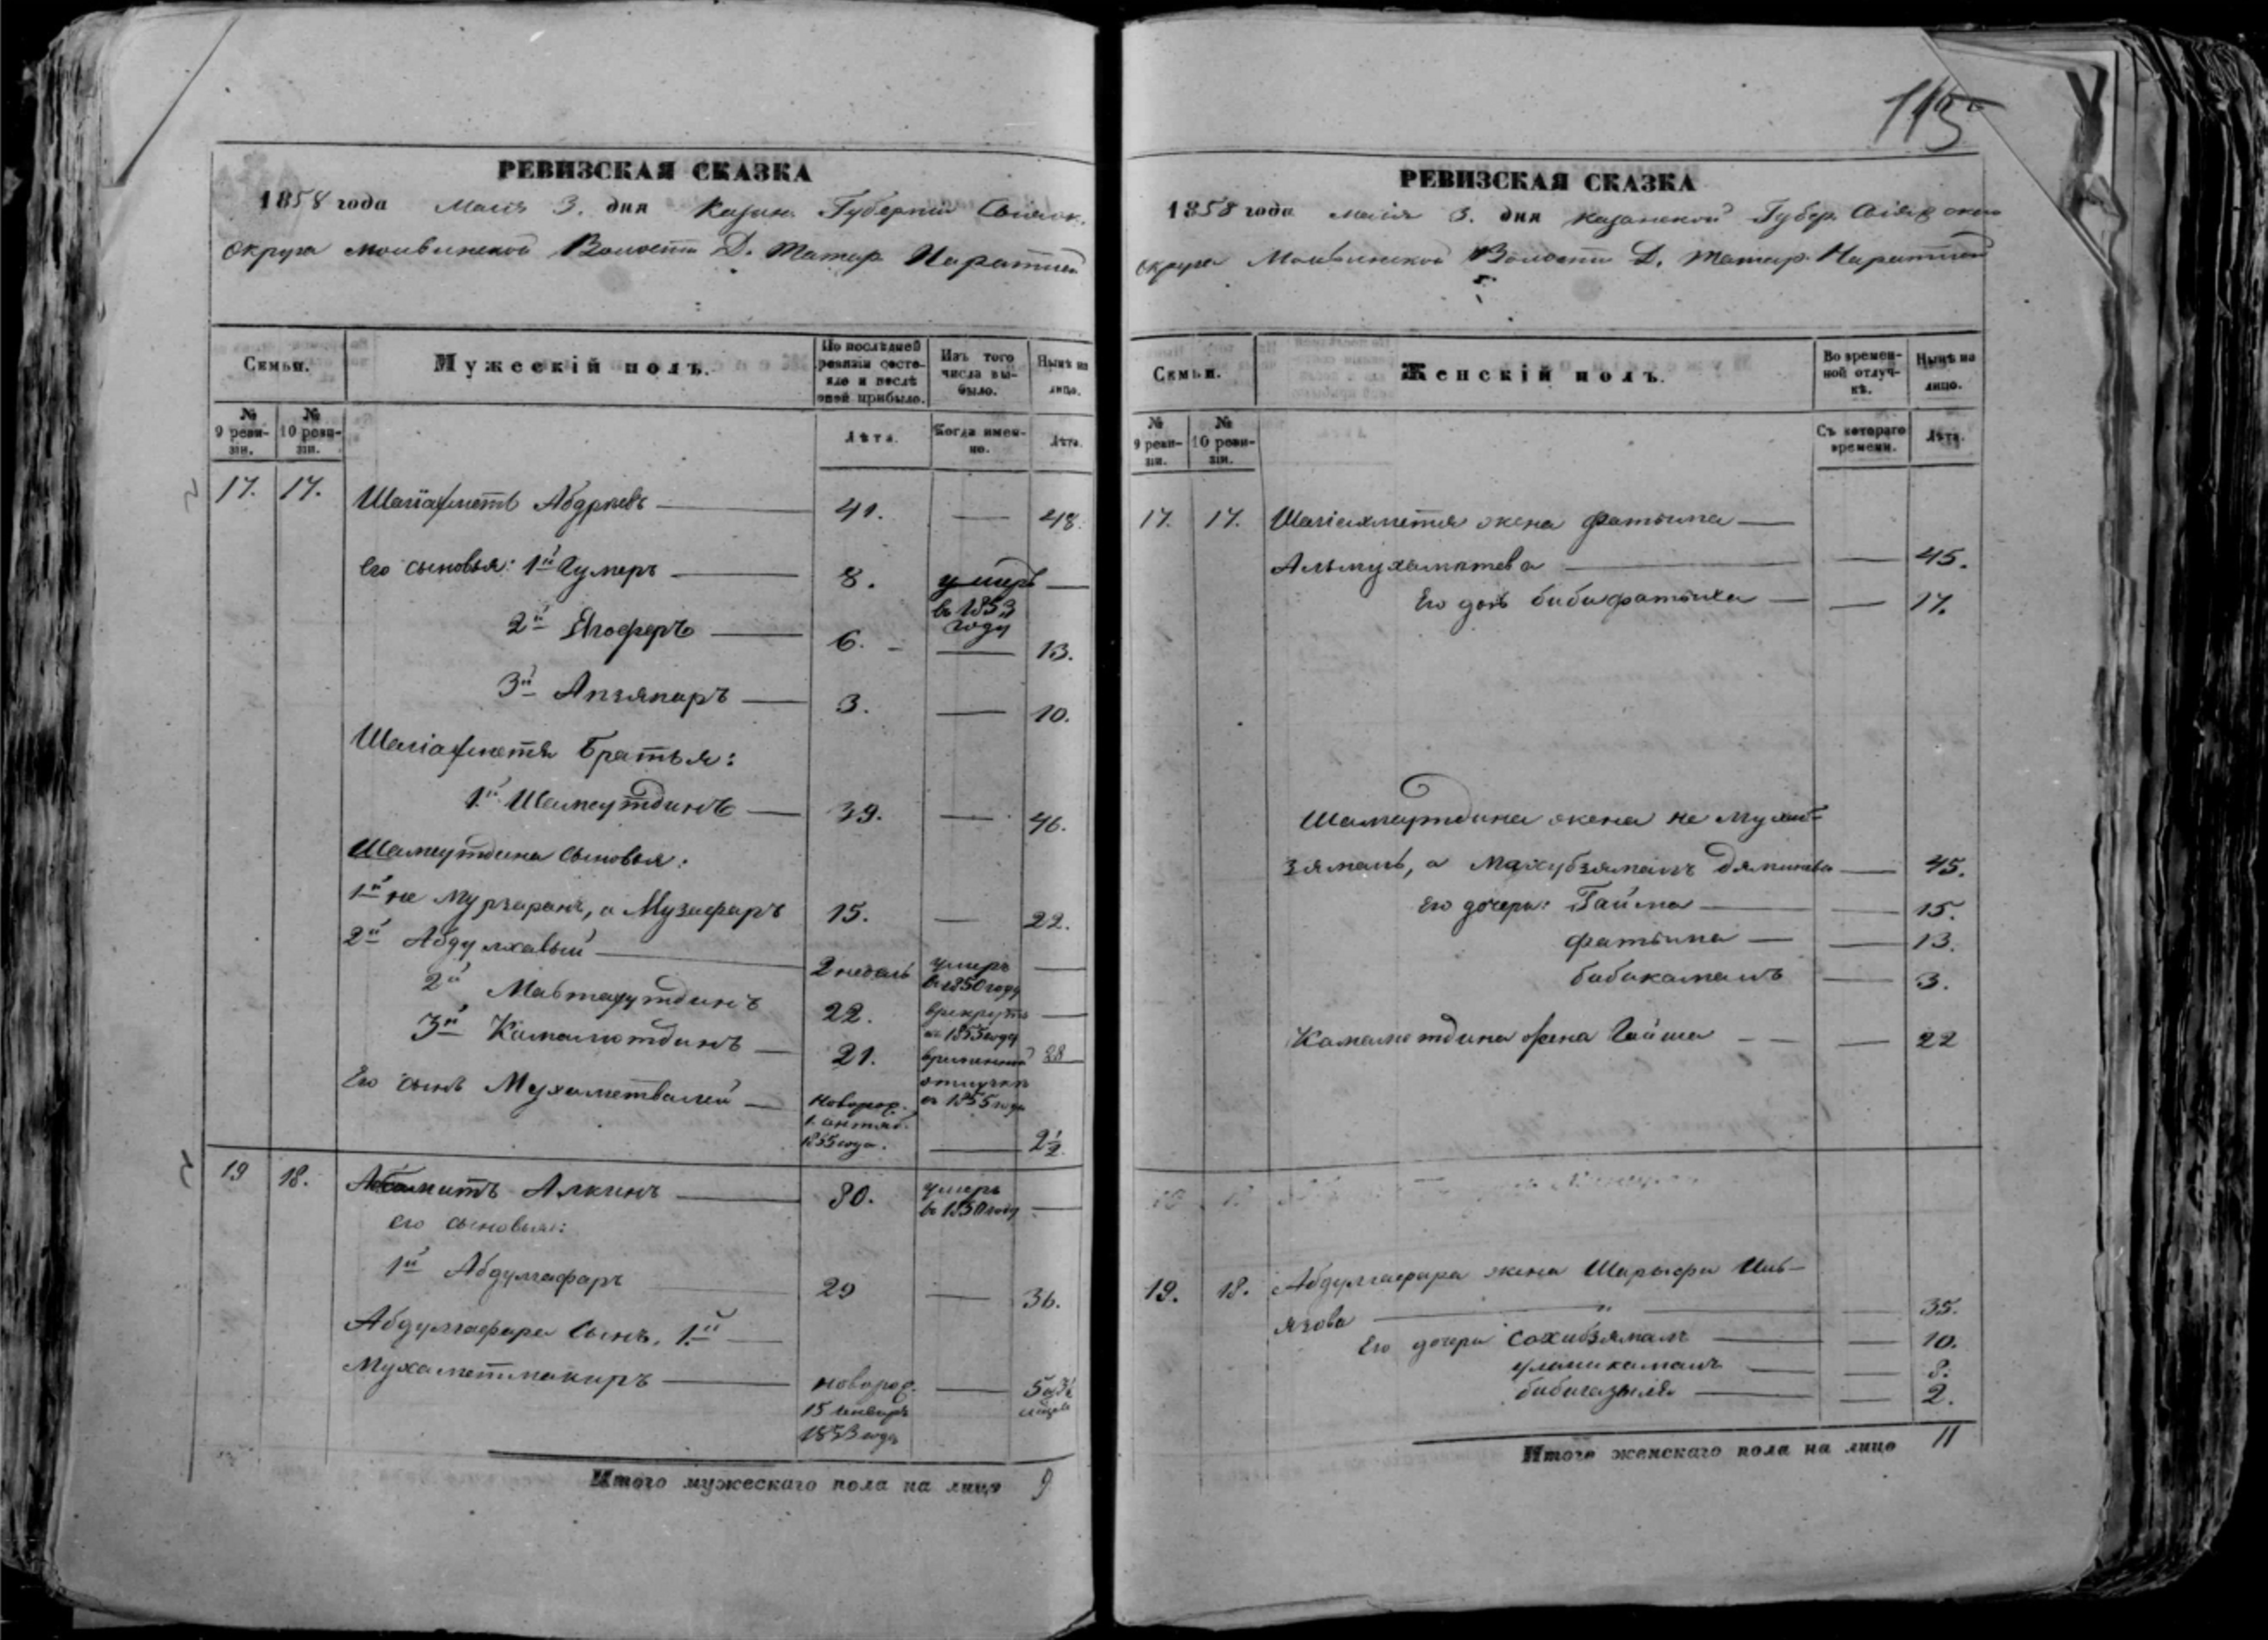 115
РЕВИЗСКАЯ СКАЗКА
1858 года Маія 3. дня Казан. Губерніи Свіяж.
Округа Молвинской Волости Д. Татар Наратлей
Семьи.
Мужескій полъ.
По послѣдней ревизіи состояло и послѣ оной прибыло.
Изъ того числа выбыло.
Нынѣ на лицо.
№ 9 ревизіи.
№ 10 ревизіи.
Лѣта.
Когда именно.
Лѣта.
17. 17. Шагіахметъ 41. — 48.
его сыновья: 1й Гумеръ — 8. умеръ —
въ 1853
году
2й Ягоферъ — 6. — 13.
3й Апзяпаръ — 3. — 10.
Шагіахметя Братья:
1й Шамсутдинъ — 39. — 46.
Шамсутдина сыновья:
1й не Мурзаранъ, а Музафаръ 15. — 22.
2й Абдулхавый — 2 недель умеръ —
въ 1850 году
2й Мавтахутдинъ 22. врекруты —
въ 1855 году
3й Камалютдинъ — 21. 28
отлучкѣ
Его сынъ Мухаметвалей — новорож. съ 1855 года
1855 года. — 2½
19 18. Алкинъ — 30. умеръ
въ 1850 году —
его сыновья:
1й Абдулгафаръ 29 — 36.
Абдулгафара Сынъ. 1й —
Мухаметшакиръ — новорож. —
15 Января
1853 года
Итого мужескаго пола на лицо 9
РЕВИЗСКАЯ СКАЗКА
1858 года Маія 3. дня Казанской Губер. Свіяжского
Округа Молвинской Волости Д. Татар. Наратлей
Семьи.
Женскій полъ.
Во временной отлучкѣ.
Нынѣ на лицо.
№ 9 ревизіи.
№ 10 ревизіи.
Съ котораго времени.
Лѣта.
17. 17. Шагіахметя жена Фатыма —
Альмухаметева — — 45.
Его дочь бибифатыха — — 17.
Шамсутдина жена не Мухиб-
зямалъ, а Махубзямалъ — 45.
Его дочери: Гайма — — 15.
Фатыма — — 13.
бибикамалъ — 3.
Камалютдина жена Гайша — — — 22
19. 18. Абдулгафара жена Шарыфа Ишь-
язова — " — — 35.
Его дочери Сахибзямал — — 10.
— — 8.
— — 2.
Итого женскаго пола на лицо 11